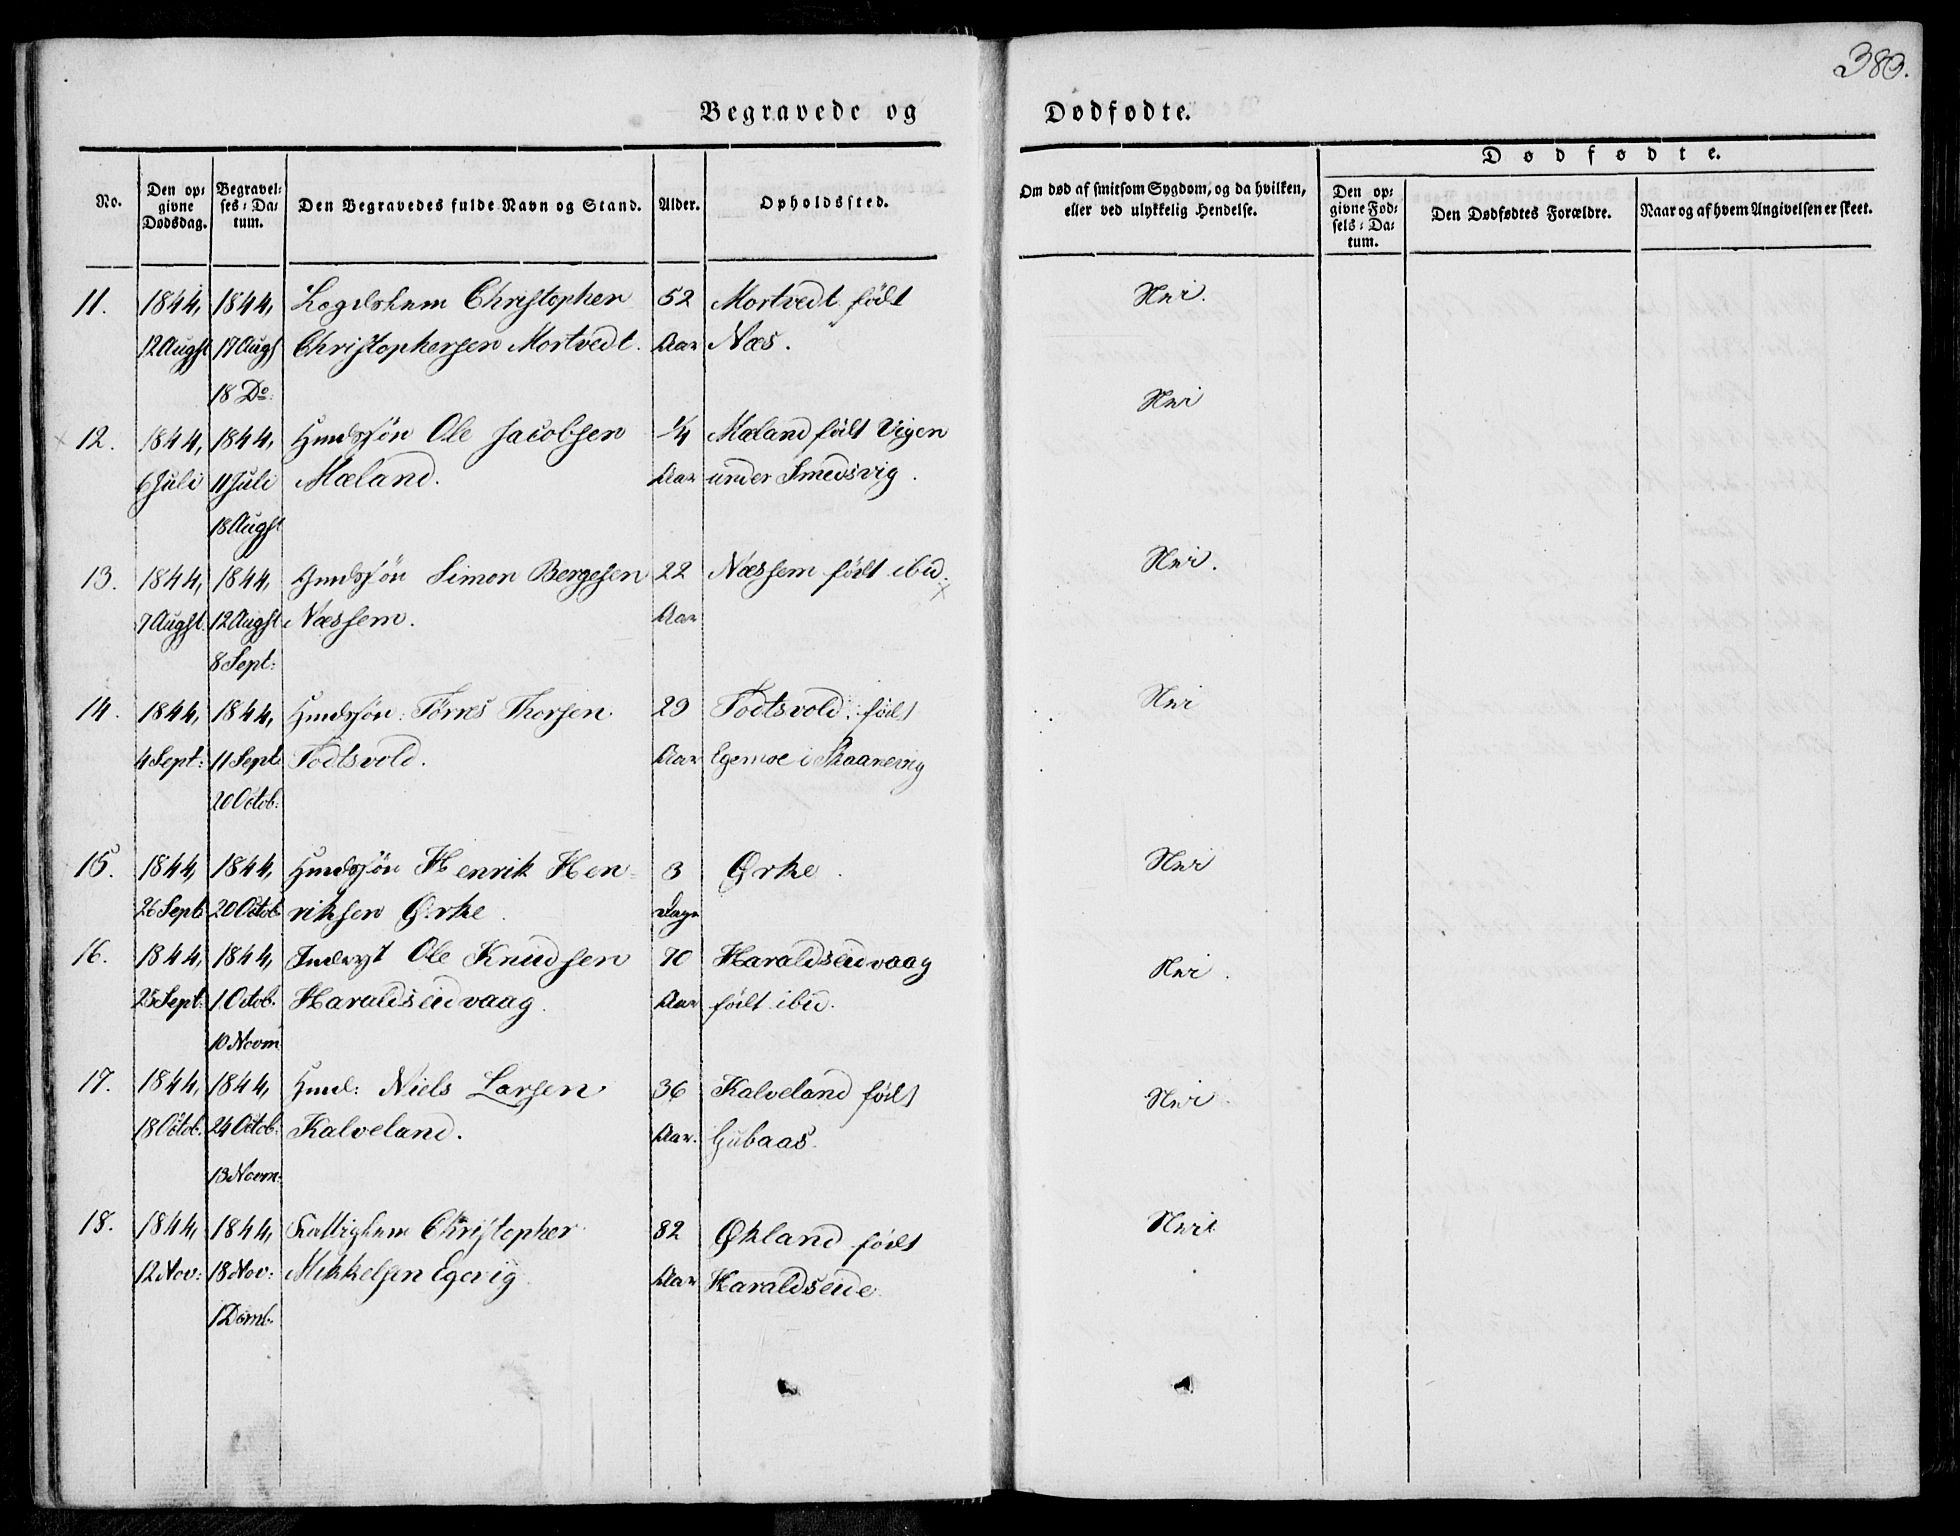 383.
Begravede og Dødfødte.
No.
Den opgivne Dødsdag.
Begravelses-Datum.
Den Begravedes fulde Navn og Stand.
Alder.
Opholdssted.
Om død af smitsom Sygdom, og da hvilken,
eller ved ulykkelig Hendelse.
Dødfødte.
Den opgivne Fødsels-Datum.
Den Dødfødtes Forældre.
Naar og af hvem Angivelsen er skeet.
11. 1844, 1844, Christopher 52 Mortvedt født Nei.
12 Augst 17 Augst Christophersen Mortvedt. Aar Næs.
18 Do:
12. 1844, 1844, Huusmssøn Ole Jacobsen 1/4 Mæland født Vigen Nei
6 Juli 11 Juli Mæland. Aar under Smedsvig.
18 Augst
13. 1844, 1844, Simon Bergesen 22 Næssem født ibid. Nei.
7 Augst 12 Augst Næssem. Aar
8 Sept:
14. 1844, 1844, Tørres Thorsen 29 Todtsvold født Nei
4 Sept: 11 Sept Todtsvold. Aar Egemoe i Skaanevig
20 Octob:
15. 1844, 1844, Henrik Hen- 3 Ørke. Nei
26 Sept 20 Octob riksen Ørke. Dage
16. 1844, 1844, Inderst Ole Knudsen 70 Haraldseidvaag Nei.
25 Sept: 1 Octob. Haraldseidvaag. Aar født ibid.
10 Novm
17. 1844, 1844, Niels Larsen 36 Kalveland født Nei.
18 Octob. 24 Octob: Kalveland. Aar.
13 Novm:
18. 1844, 1844, Christopher 82 Økland født Nei
12 Nov: 18 Nov: Mikkelsen Aar Haraldseide
1 Decmb.